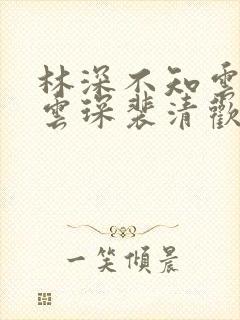 林深不知雲
雲琛裴清歡
一笑傾晨